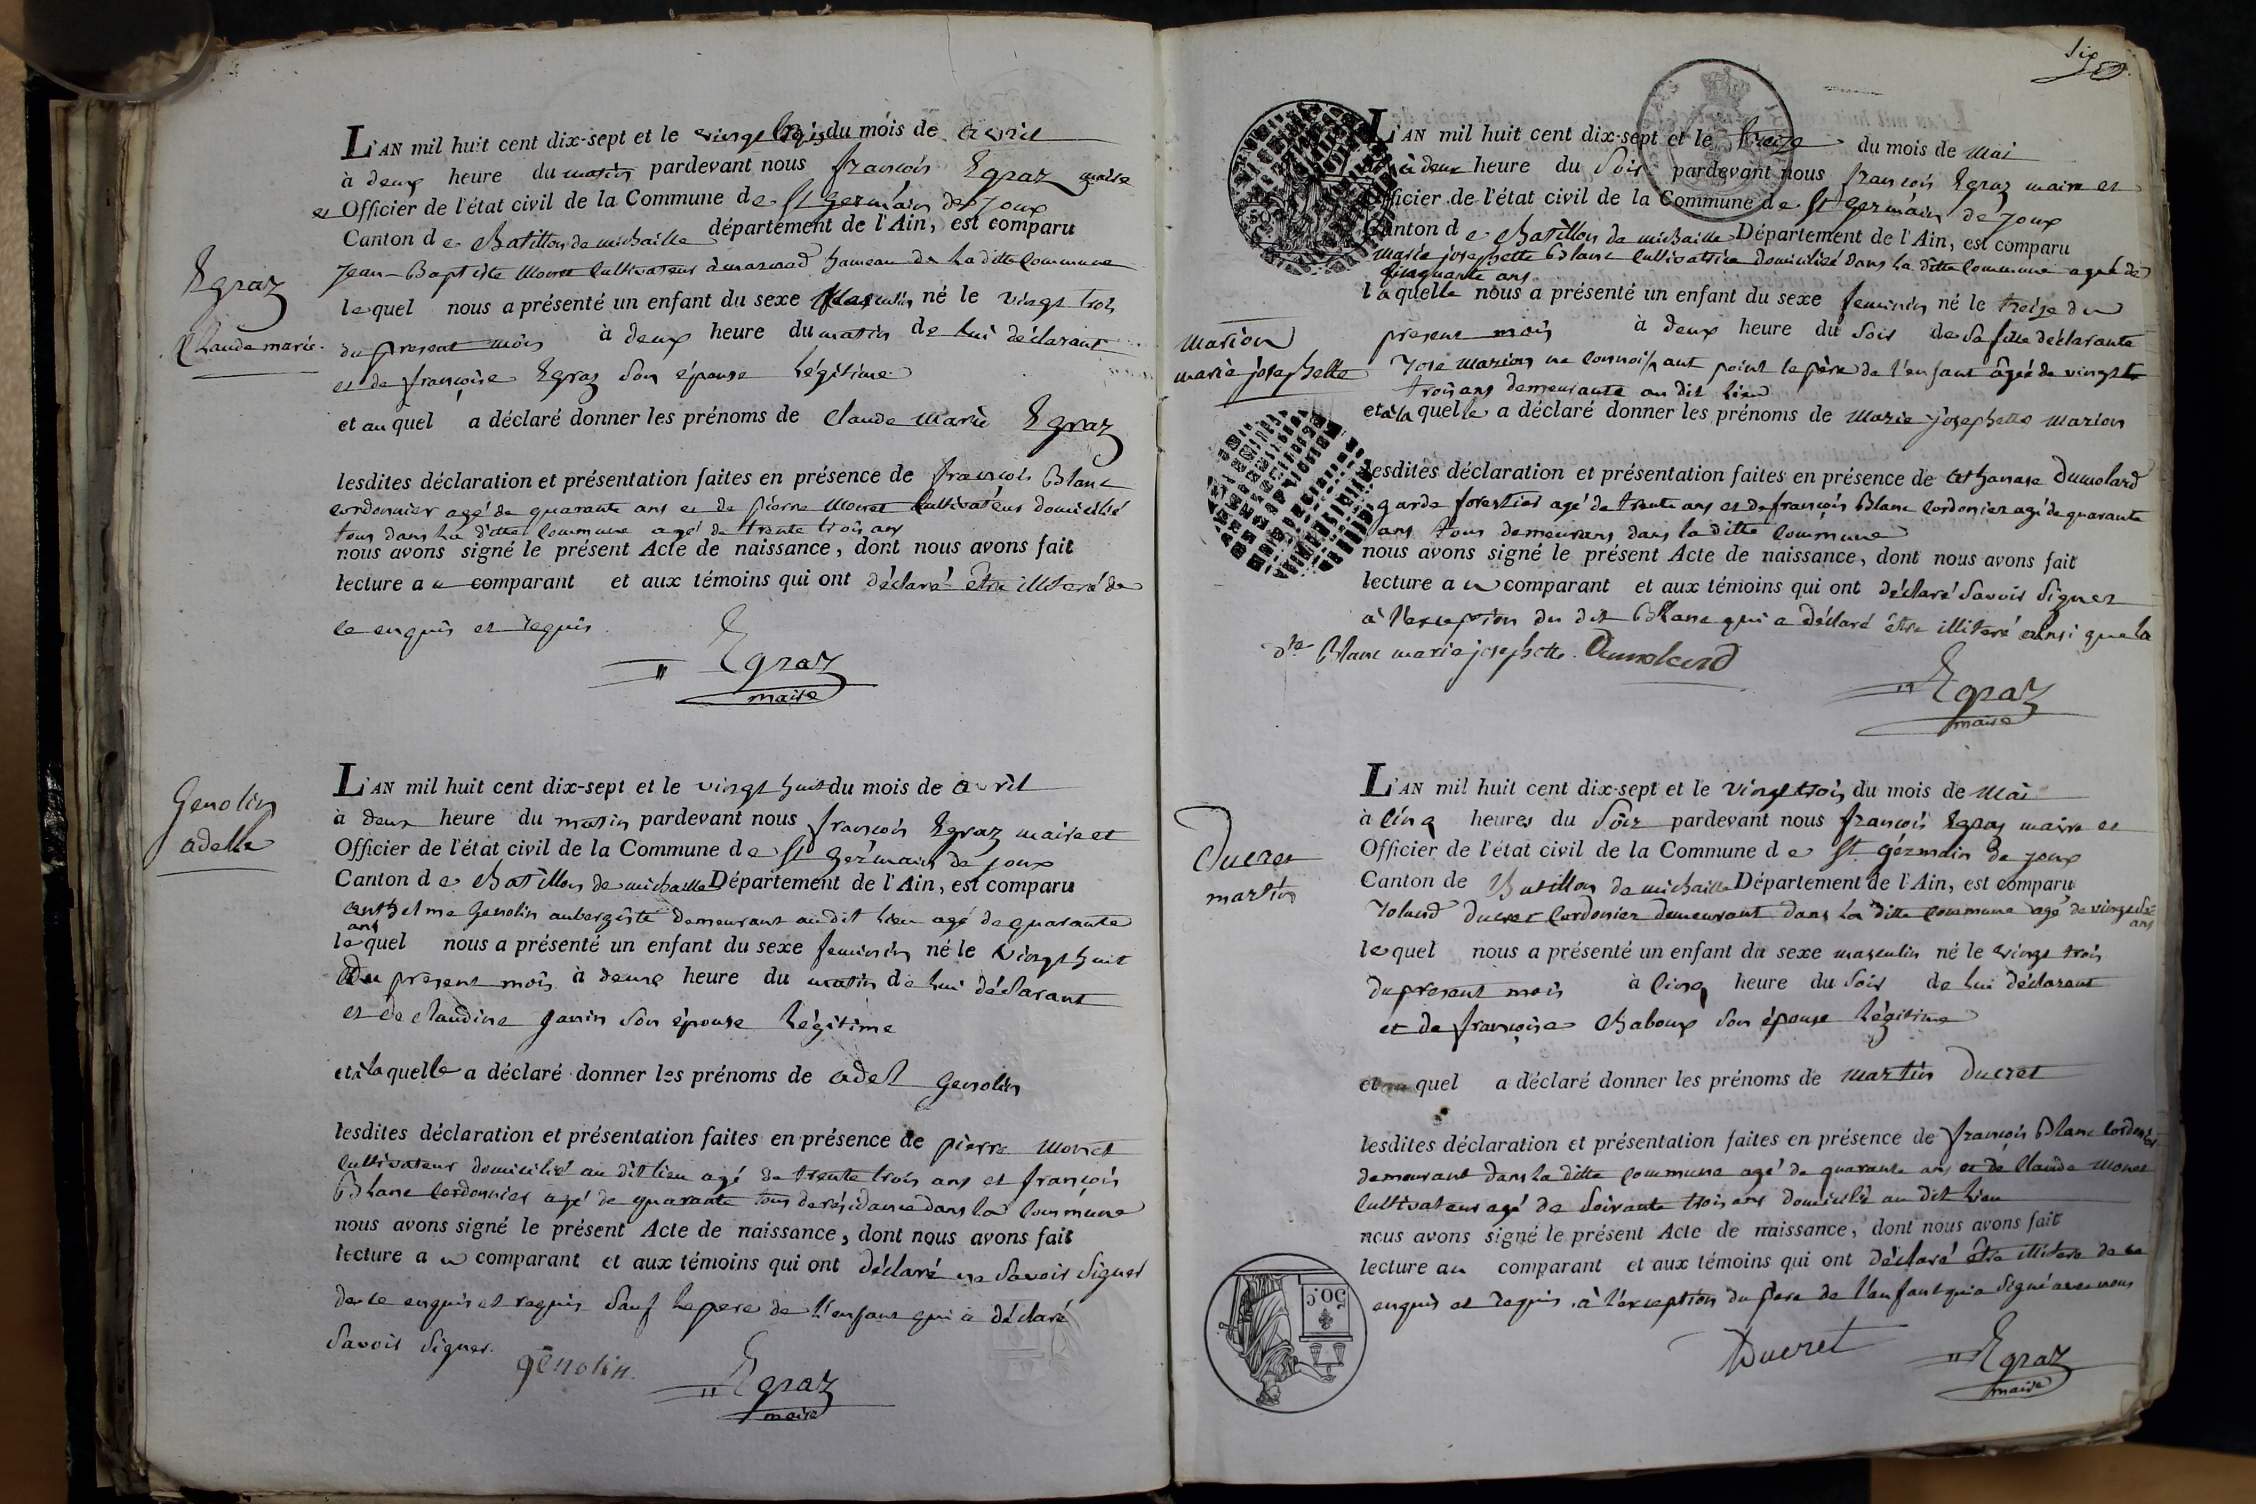 L'AN mil huit cent dix-sept et le vingt trois du mois de avril
à deux heure du matin pardevant nous françois Egraz maire
et Officier de l'état civil de la Commune de St germain de Joux
Canton de Chatillon de michaille département de l'Ain, est comparu
Jean-Baptiste Monet Cultivateur à marnod hameau de la ditte Commune
Egraz
Claude marie
lequel nous a présenté un enfant du sexe Masculin né le vingt trois
du present mois à deux heure du matin de lui déclarant
et de françoise Egraz son épouse légitime
et auquel a déclaré donner les prénoms de Claude Marie Egraz
lesdites déclaration et présentation faites en présence de françois Blanc
Cordonnier agé de quarante ans et de pierre Monet Cultivateur domicilié
tous dans la ditte Commune agé de trente trois ans
nous avons signé le présent Acte de naissance, dont nous avons fait
lecture au comparant et aux témoins qui ont déclaré être illiteré de
ce enquis et requis
Egraz
maire
Genolin
adelle
L'AN mil huit cent dix-sept et le vingt huit du mois de avril
à deux heure du matin pardevant nous françois Egraz maire et
Officier de l'état civil de la Commune de St germain de joux
Canton de Chatillon de michaille Département de l'Ain, est comparu
anthelme Genolin aubergiste demeurant au dit lieu agé de quarante
ans
lequel nous a présenté un enfant du sexe feminin né le vingt huit
du present mois à deux heure du matin de lui déclarant
et de claudine janin son épouse légitime
et à laquelle a déclaré donner les prénoms de adel Genolin
lesdites déclaration et présentation faites en présence de pierre Monet
Cultivateur domicilié au dit lieu agé de trente trois ans et françois
Blanc Cordonnier agé de quarante tous de résidance dans la Commune
nous avons signé le présent Acte de naissance, dont nous avons fait
lecture au comparant et aux témoins qui ont déclaré ne Savoir Signer
de ce enquis et requis Sauf le pere de l'enfant qui a déclaré
Savoir Signer.
genolin.
Egraz
maire
L'AN mil huit cent dix-sept et le treize du mois de Mai
à deux heure du Soir pardevant nous françois Egraz maire et
Officier de l'état civil de la Commune de St germain de joux
Canton de Chatillon de michaille Département de l'Ain, est comparu
marie josephette Blanc Cultivatrice domiciliée dans la ditte Commune agée de
cinquante ans
laquelle nous a présenté un enfant du sexe feminin né le treize du
marion
marie josephette
present mois à deux heure du Soir de Sa fille déclarante
José Marion ne connoissant point le père de l'enfant âgée de vingt
trois ans demeurante au dit lieu
et à laquelle a déclaré donner les prénoms de Marie josephette Marion
lesdites déclaration et présentation faites en présence de athanase Dumolard
garde forestier agé de trente ans et de françois Blanc Cordonier agé de quarante
ans tous demeurans dans la ditte Commune
nous avons signé le présent Acte de naissance, dont nous avons fait
lecture au comparant et aux témoins qui ont déclaré Savoir Signer
à l'exception du dit Blanc qui a déclaré être illiteré ainsi que la
dte Blanc marie josephette. Dumolard
Egraz
maire
Ducret
martin
L'AN mil huit cent dix-sept et le vingt trois du mois de Mai
à cinq heures du Soir pardevant nous françois Egraz maire et
Officier de l'état civil de la Commune de St germain de joux
Canton de Chatillon de michaille Département de l'Ain, est comparu
Ducret Cordonier demeurant dans la ditte Commune agé de
ans
lequel nous a présenté un enfant du sexe masculin né le vingt trois
du present mois à cinq heure du Soir de lui déclarant
et de françoise Chaboux son épouse légitime
et auquel a déclaré donner les prénoms de Martin Ducret
lesdites déclaration et présentation faites en présence de françois Blanc Cordonier
demeurant dans la ditte Commune agé de quarante ans et de Claude Monet
Cultivateur agé de Soixante trois ans domicilié au dit lieu
nous avons signé le présent Acte de naissance, dont nous avons fait
lecture au comparant et aux témoins qui ont déclaré être illitere de ce
enquis et requis, à l'exception du pere de l'enfant qui a Signé avec nous
Ducret
Egraz
maire
50 C